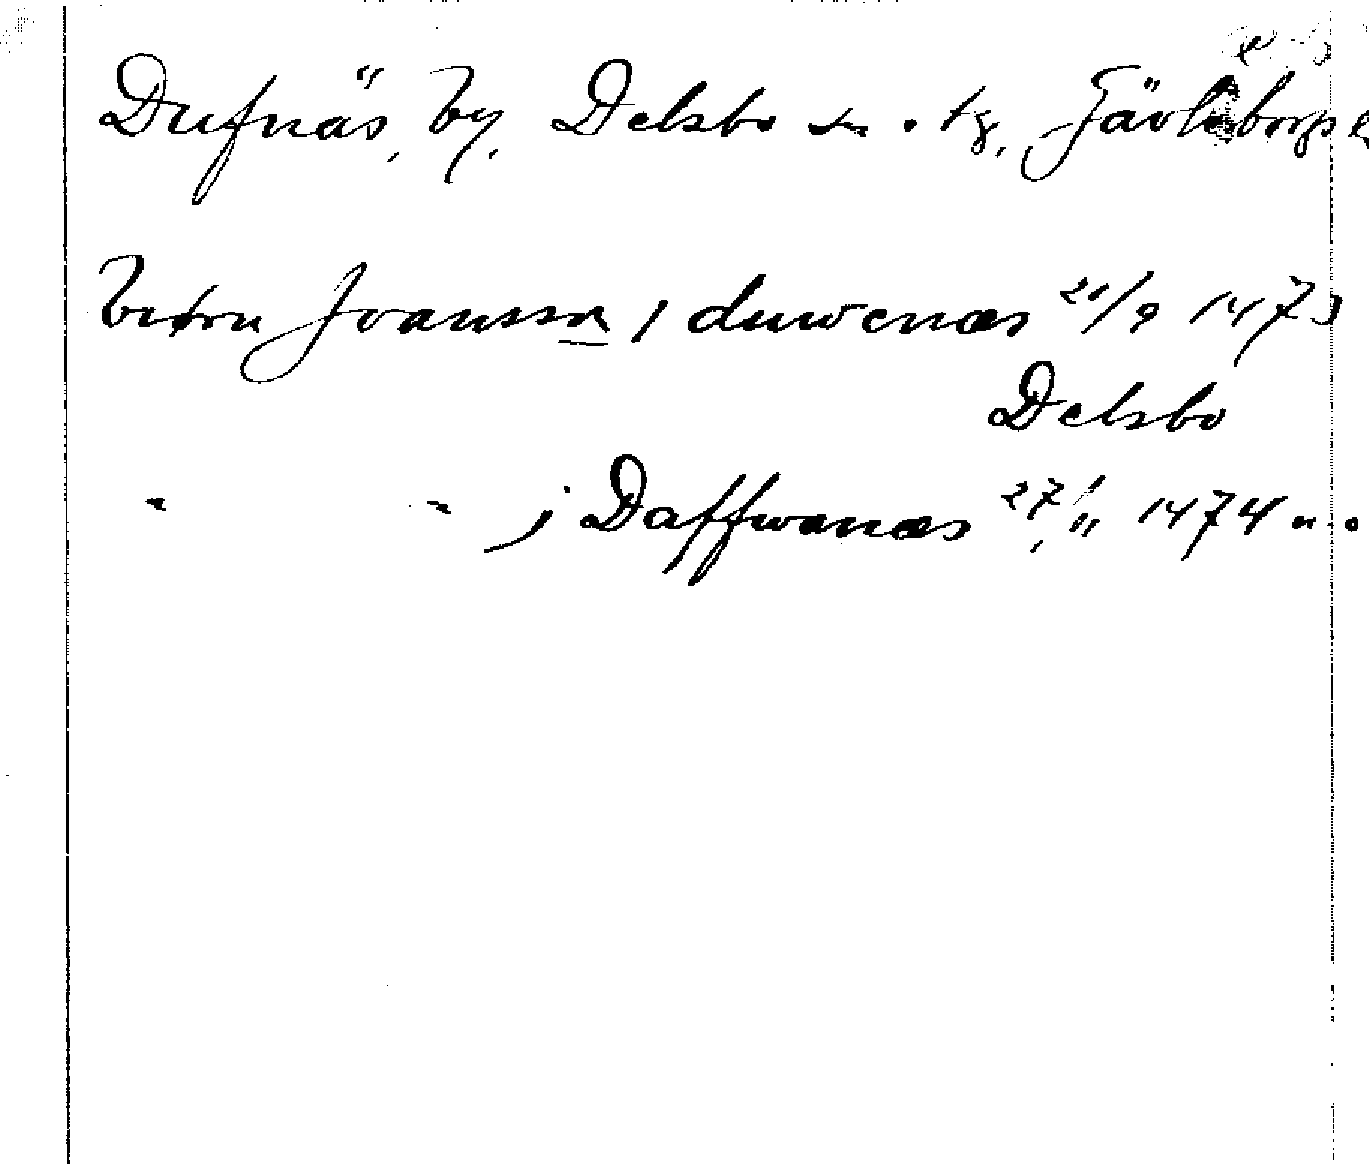 Dufnäs, by, Delsbo sn o. tg, Gävleborgs l
Biørn Joansson j duwenæs 21/9 1473
Delsbo
" " j Daffwanæs 27/11 1474 " o